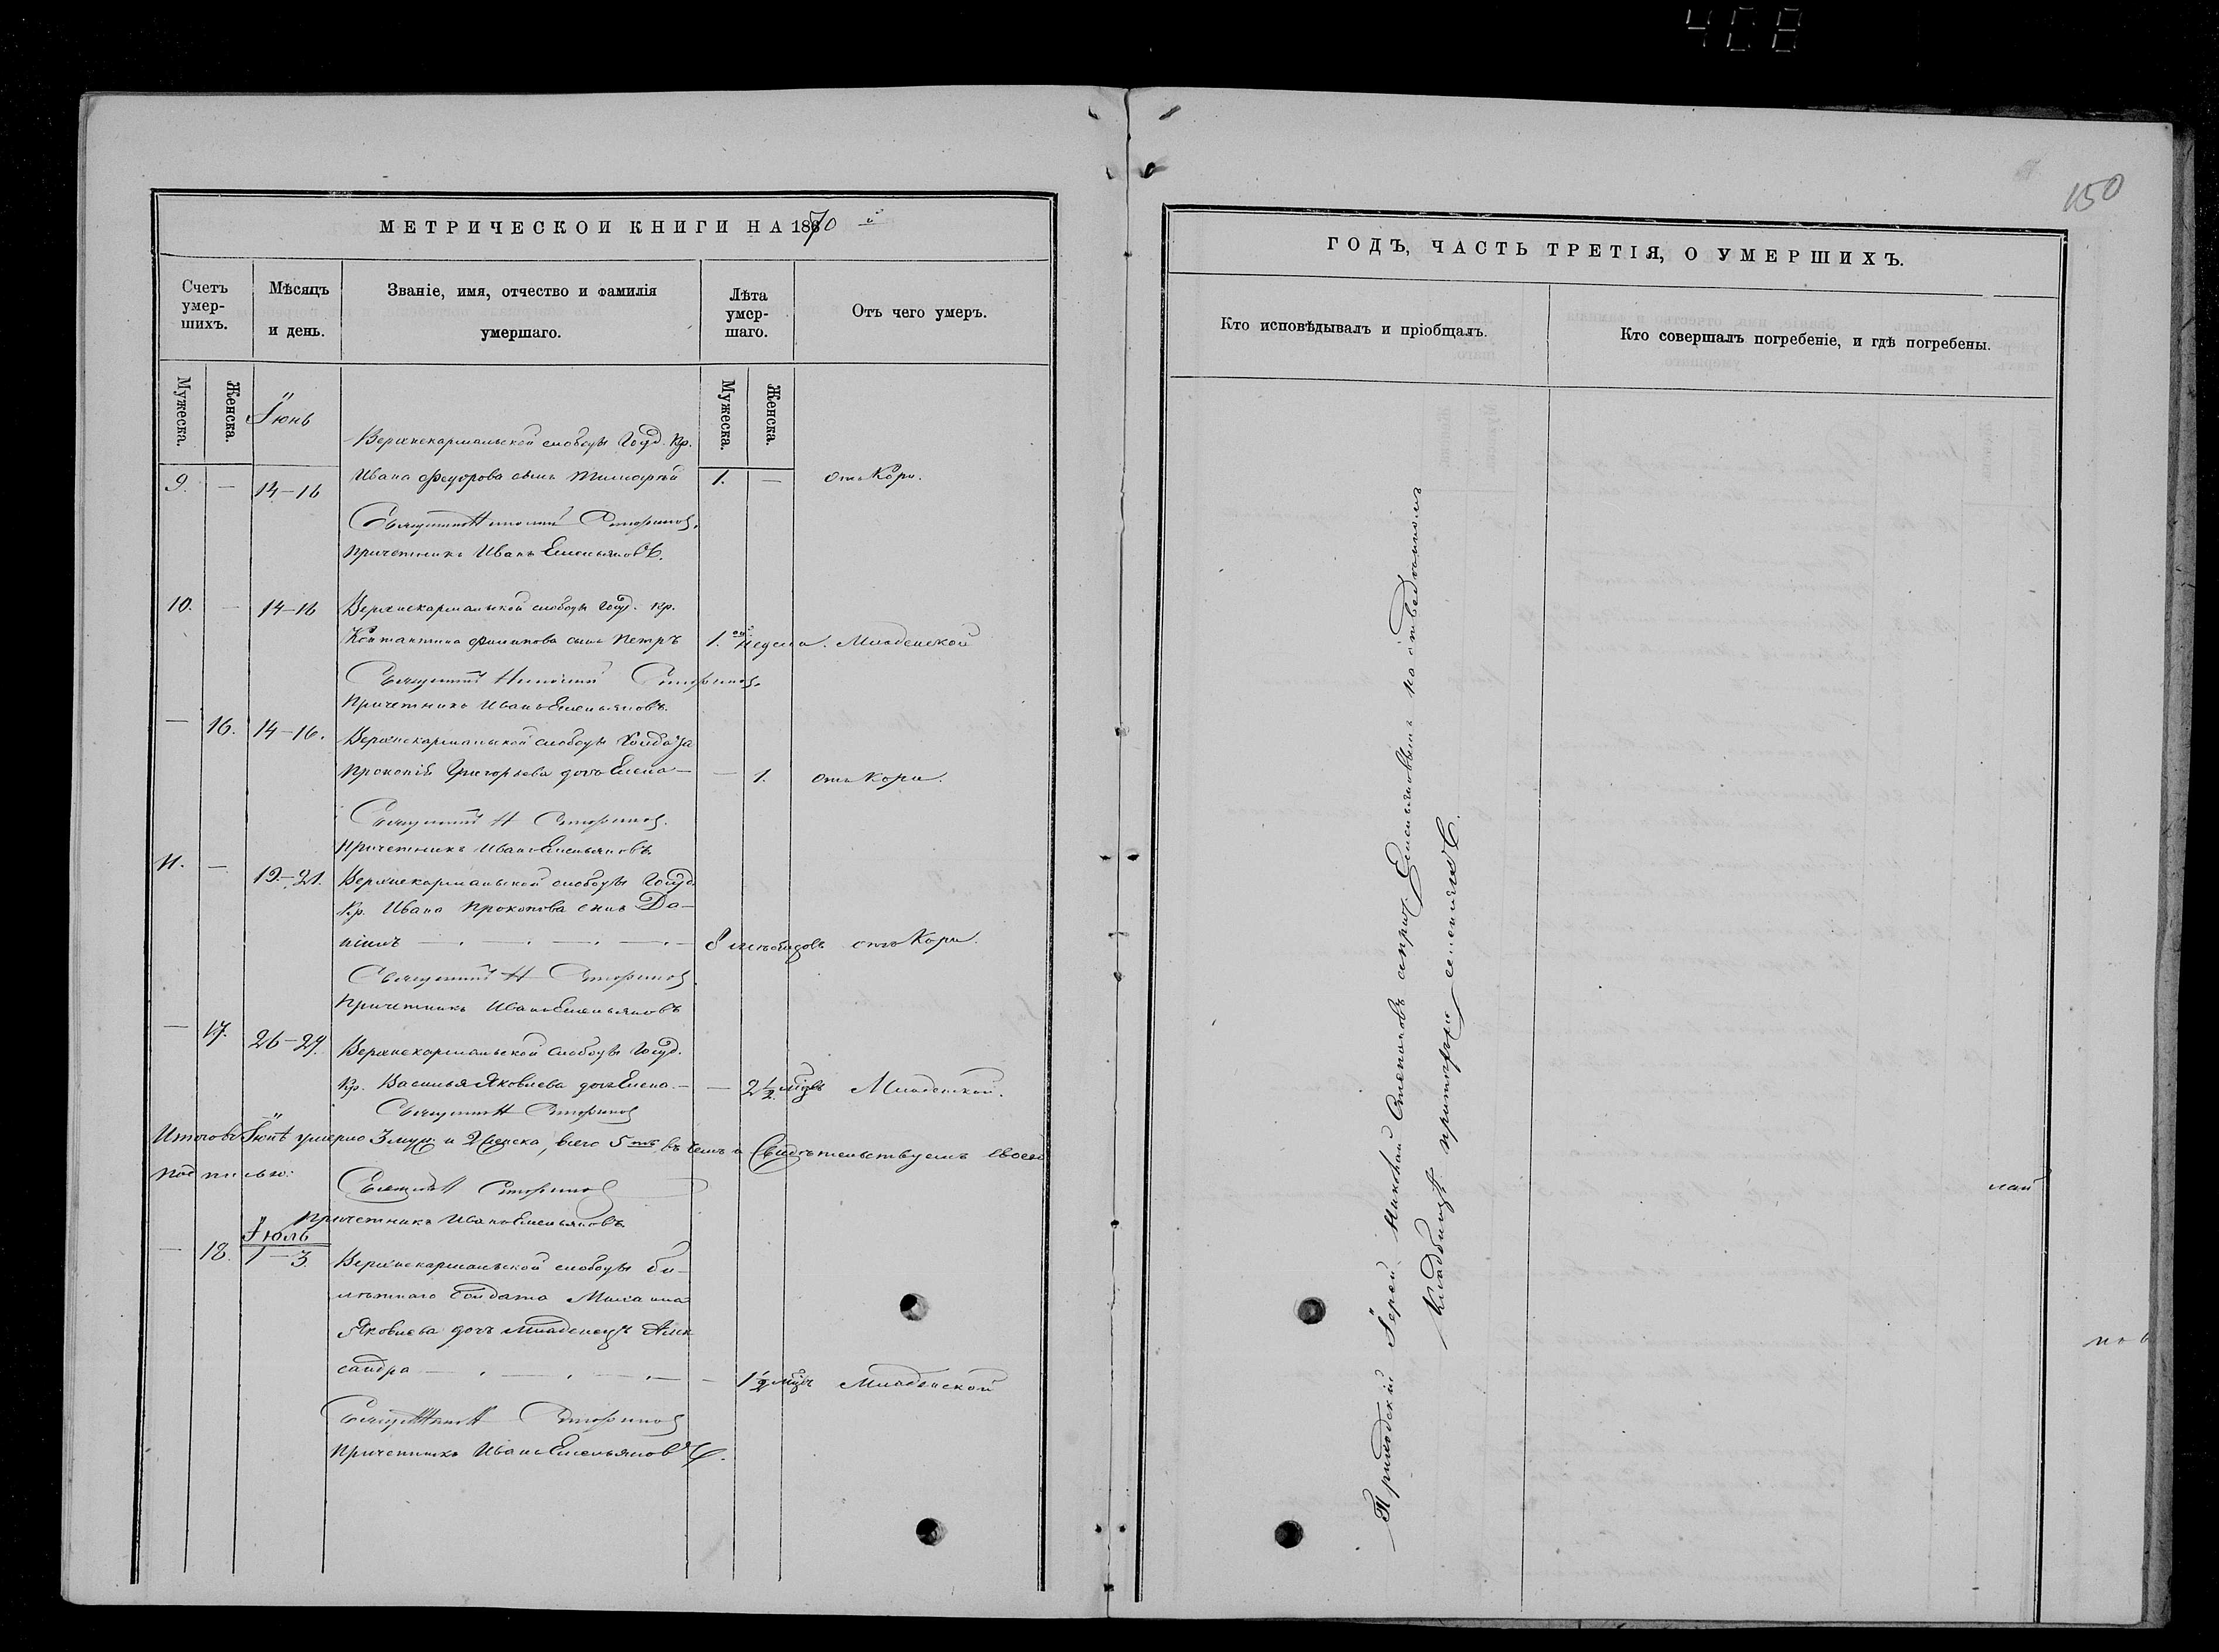 408
150
МЕТРИЧЕСКОЙ КНИГИ НА 1870 й
Счетъ умер-шихъ.
Мѣсяцъ и день.
Званіе, имя, отчество и фамилія умершаго.
Лѣта умер-шаго.
Отъ чего умеръ.
Мужеска.
Женска.
Мужеска.
Женска.
Іюнь
Верхнекармальской слободы Госуд. Кр.
9. — 14–16 Ивана Федорова сынъ Тимофѣй 1. — отъ Кори.
Священникъ Николай
Причетникъ Иванъ Емельяновъ.
10. — 14–16 Верхнекармальской слободы Госуд. кр.
Константина Филипова сынъ Петръ 1. недели. Младенской
Священникъ Николай
Причетникъ Иванъ Емельяновъ.
— 16. 14–16. Верхнекармальской слободы Солдата
Прокопія Григорьева дочь Елена — — 1. отъ Кори.
Священникъ Н
Причетникъ Иванъ Емельяновъ
11. — 19–21. Верхнекармальской слободы Госуд.
Кр. Ивана Прокопова сынъ Да-
ніилъ — 8 месяцовъ отъ Кори.
Священникъ Н
Причетникъ Иванъ Емельяновъ
— 17. 26–29. Верхнекармальской слободы Госуд.
Кр. Василья Яковлева дочь Елена — — 2 1/2 мѣцъ Младенской.
Священникъ Н
Итого въ Іюнѣ умерло 3 муж. и 2 женска, всего 5 въ чемъ и свидѣтельствуемъ своею
подписью:
Священникъ Н
Причетникъ Иванъ Емельяновъ
Іюль
— 18. 1–3 Верхнекармальской слободы би-
летнаго Солдата Михаила
Яковлева дочь младенецъ Алек
сандра — — 1 1/2 мѣцъ Младенской
Священникъ Н
Причетникъ Иванъ Емельяновъ.
ГОДЪ, ЧАСТЬ ТРЕТІЯ, О УМЕРШИХЪ.
Кто исповѣдывалъ и пріобщалъ.
Кто совершалъ погребеніе, и гдѣ погребены.
Приходскій Іерей Николай съ прич. Емельяновымъ на отведенномъ
Кладбищѣ при
лай
нов